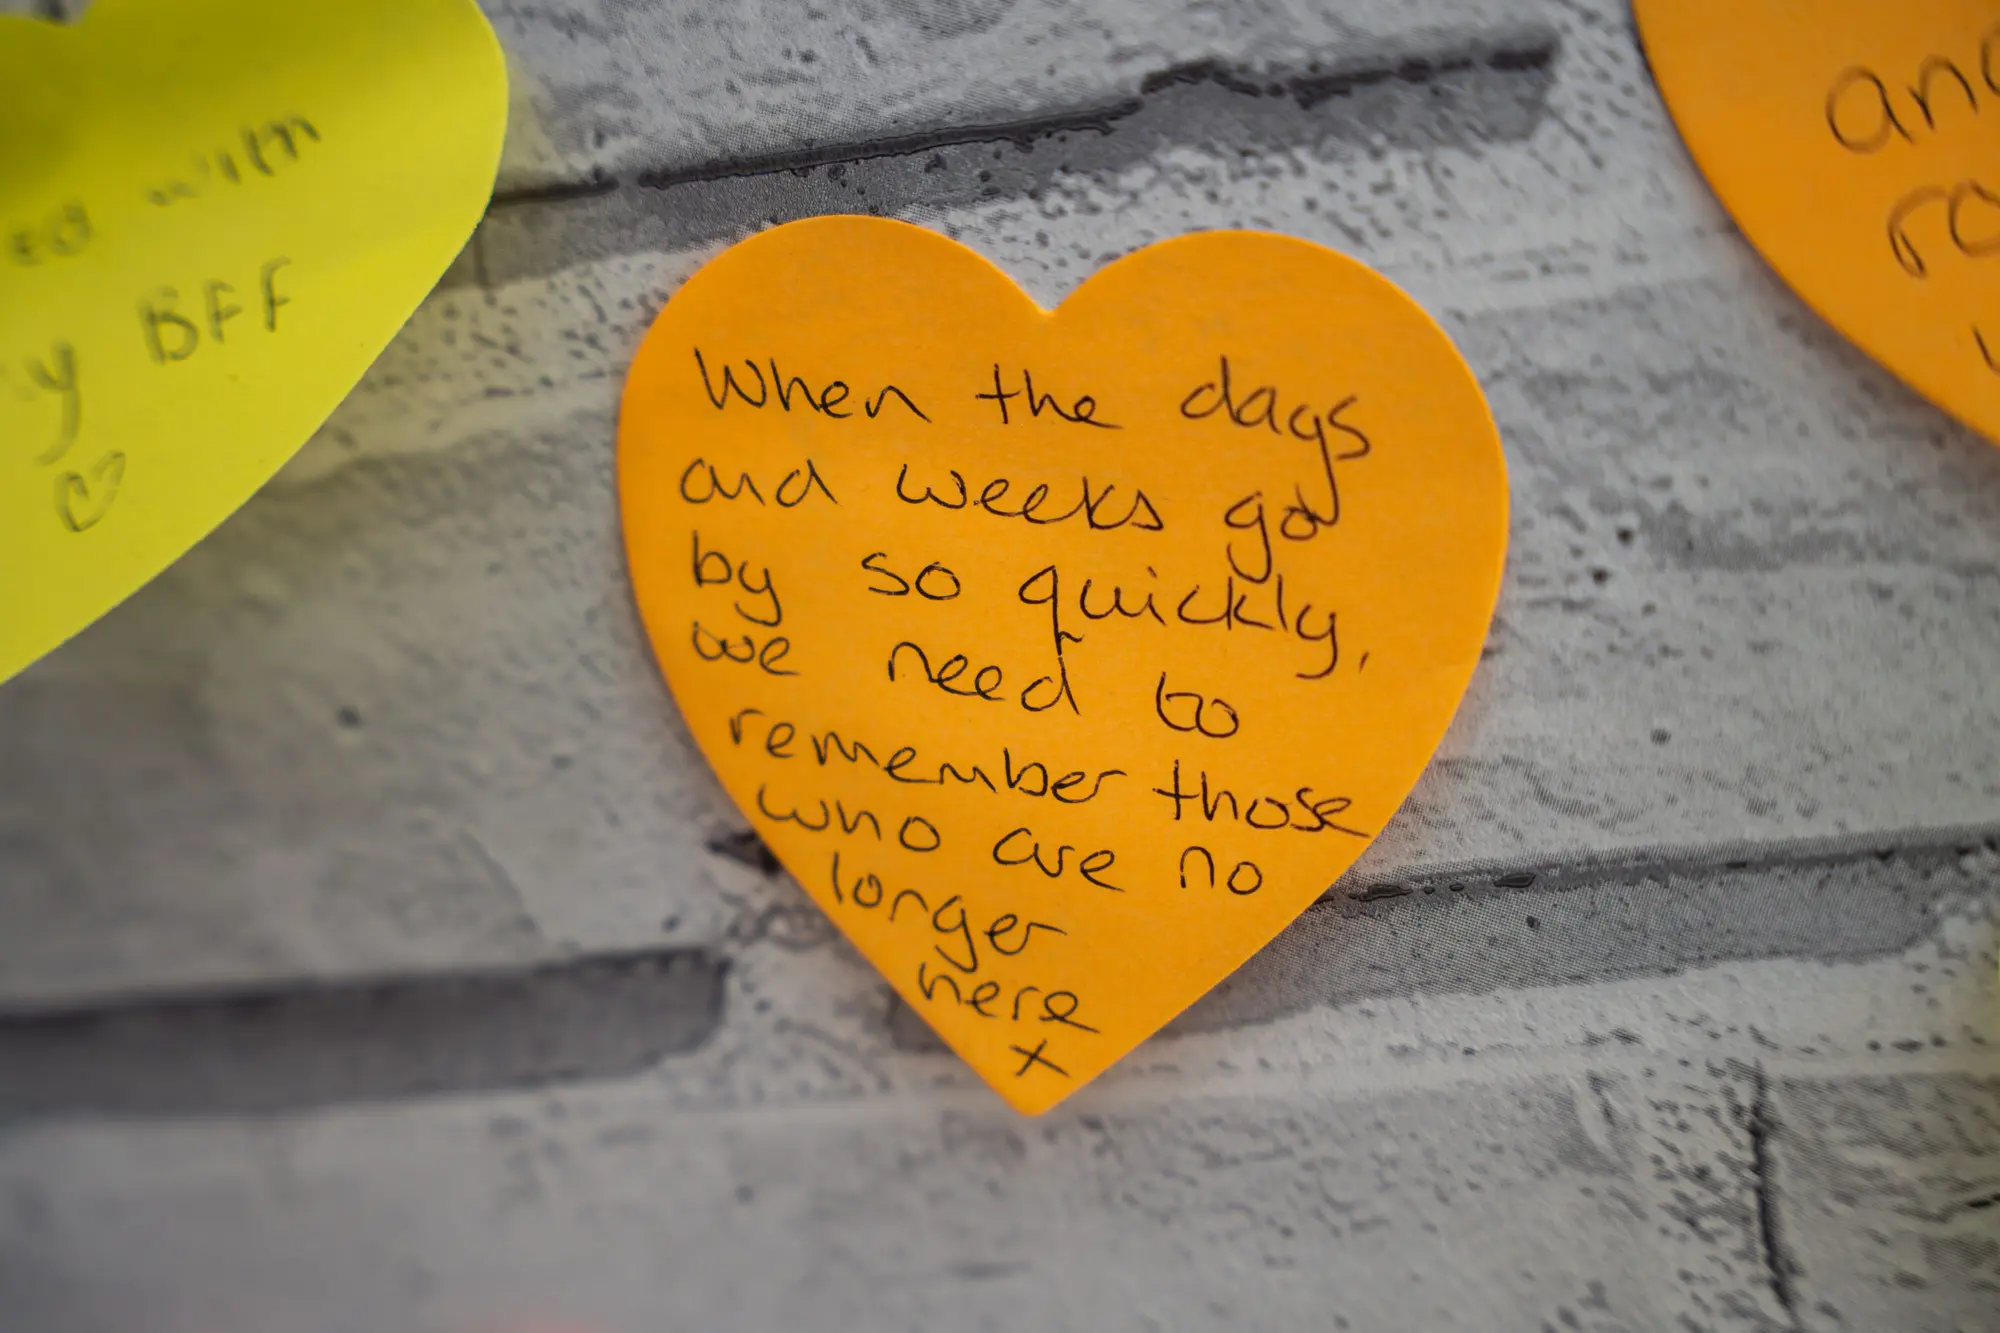 with
BFF
When the days
and weeks go
by so quickly,
we need to
remember those
who are no
longer
here
x